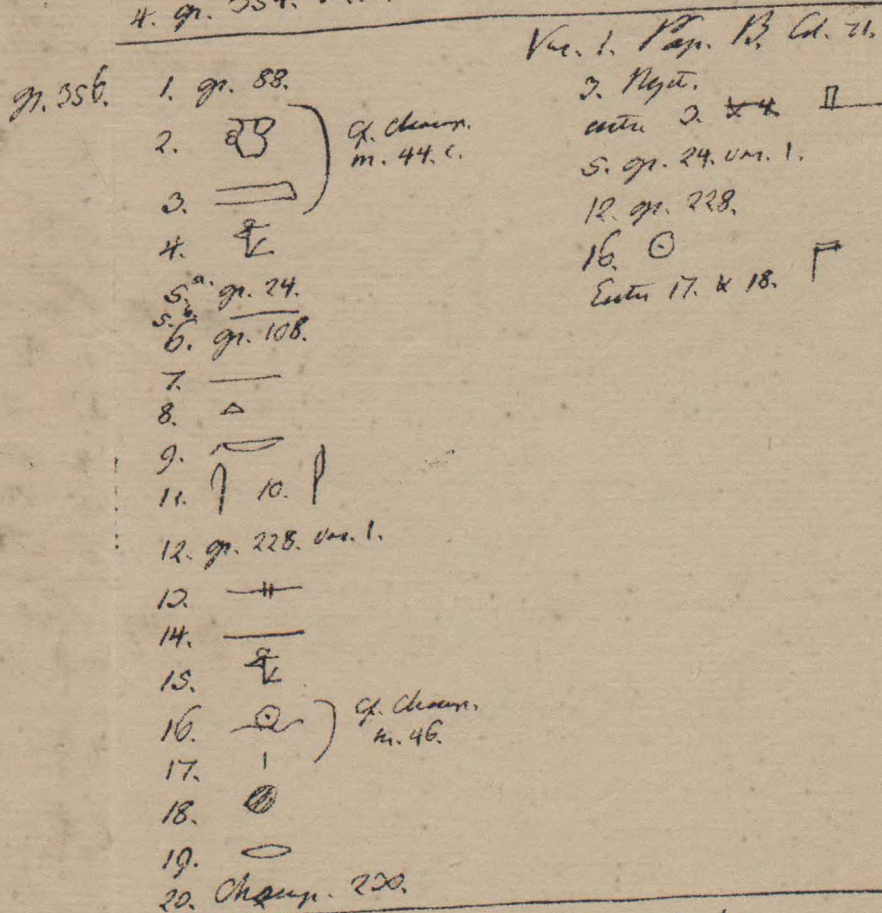 4. gr. 354.
gr. 356.
1. gr. 88.
2.
3.
cf. Champ.
m. 44. c.
4.
5.a. gr. 24.
5.b.
6. gr. 108.
7.
8.
9.
11. 10.
12. gr. 228. var. 1.
13.
14.
15.
16.
17.
cf. Champ.
m. 46.
18.
19.
20. Champ. 230.
Var. 1. Pap. B. Col. 21.
3.
entre 3.
5. gr. 24. var. 1.
12. gr. 228.
16.
Entre 17. & 18.